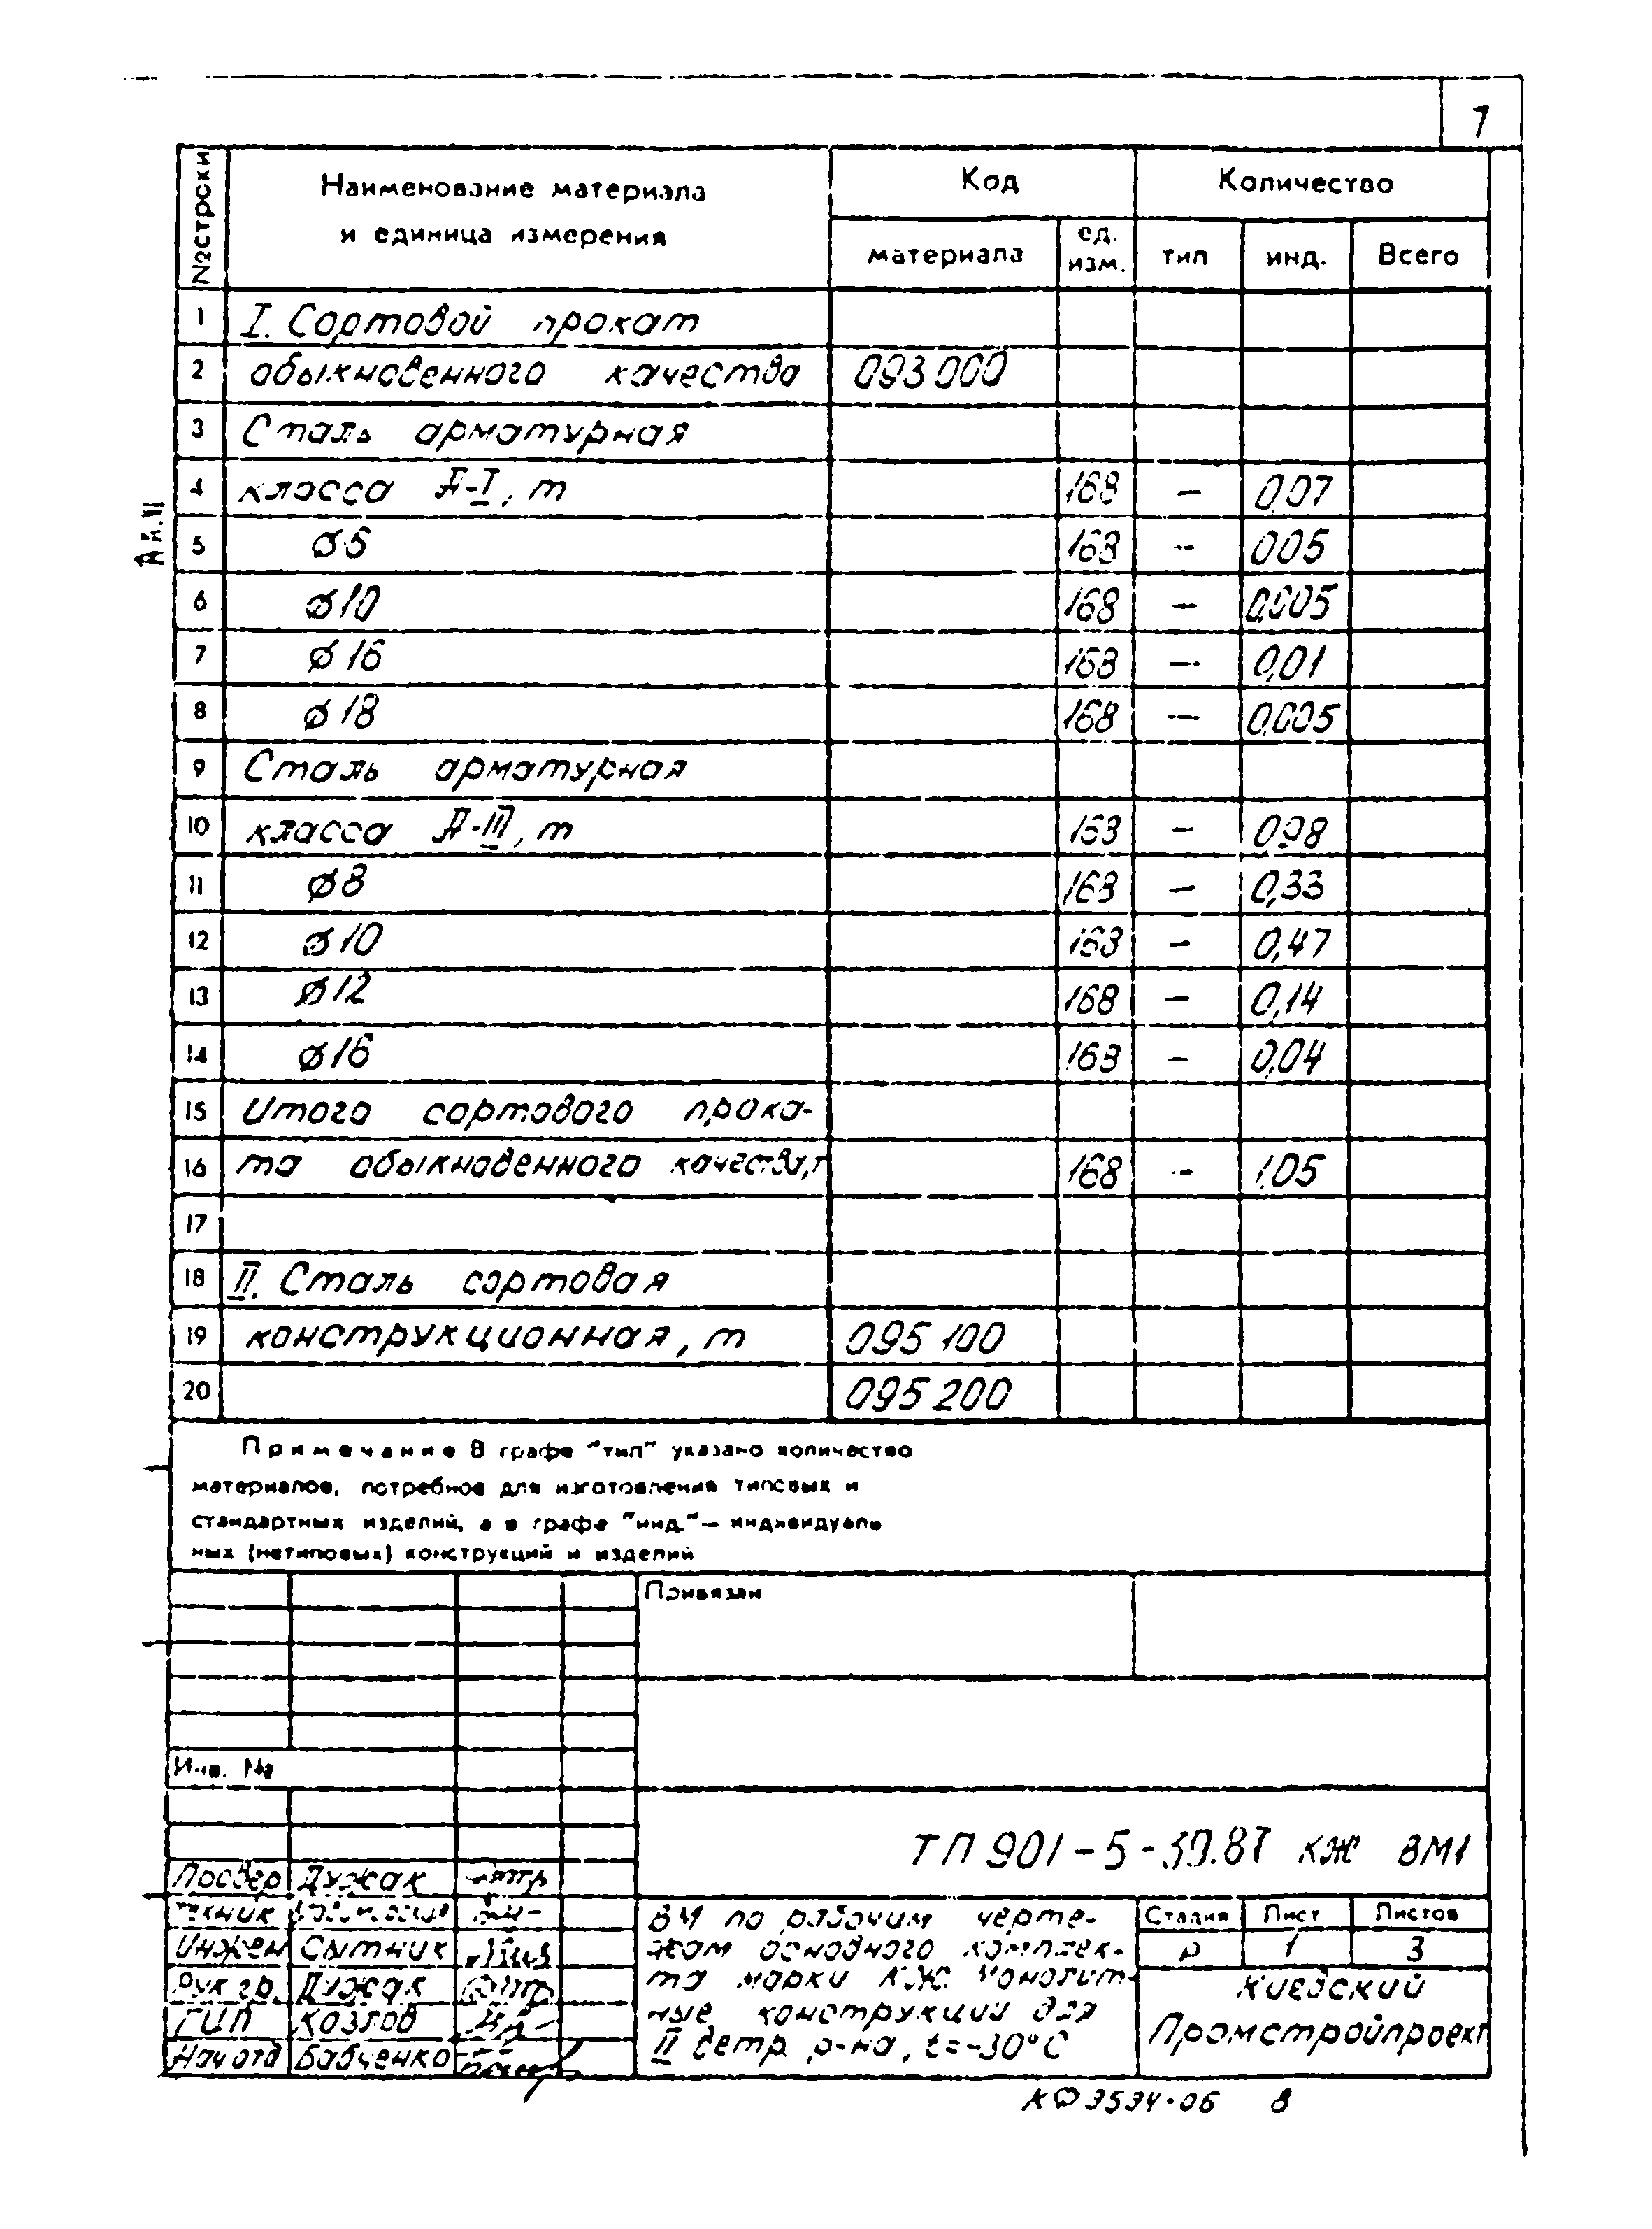 7
№ строки | Наименование материала и единица измерения | Код | Количество
материала | ед. изм. | тип | инд. | Всего
1 | I. Сортовой прокат
2 | обыкновенного качества | 093000
3 | Сталь арматурная
4 | класса А-I, т | 168 | – | 0,07
5 | ø6 | 168 | – | 0,05
6 | ø10 | 168 | – | 0,005
7 | ø16 | 168 | – | 0,01
8 | ø18 | 168 | – | 0,005
9 | Сталь арматурная
10 | класса А-III, т | 168 | – | 0,98
11 | ø8 | 168 | – | 0,33
12 | ø10 | 168 | – | 0,47
13 | ø12 | 168 | – | 0,14
14 | ø16 | 168 | – | 0,04
15 | Итого сортового прока-
16 | та обыкновенного качества, т | 168 | – | 1,05
17
18 | II. Сталь сортовая
19 | конструкционная, т | 095100
20 | 095200
Ал.VI
Примечание В графе "тип" указано количество
материалов, потребное для изготовления типовых и
стандартных изделий, а в графе "инд."— индивидуаль
ных (нетиповых) конструкций и изделий
Привязан
Инв. №
ТП 901-5-39.87 КЖ ВМ1
Провер Дужак
Техник
Инжен Сытник
Рук гр. Дужак
ГИП Козлов
Нач отд Бабченко
ВМ по рабочим черте-
жам основного комплек-
та марки КЖ. Монолит-
ные конструкции для
II ветр р-на, t=-30°С
Стадия | Лист | Листов
Р | 1 | 3
Киевский
Промстройпроект
КФ 3534-06 8